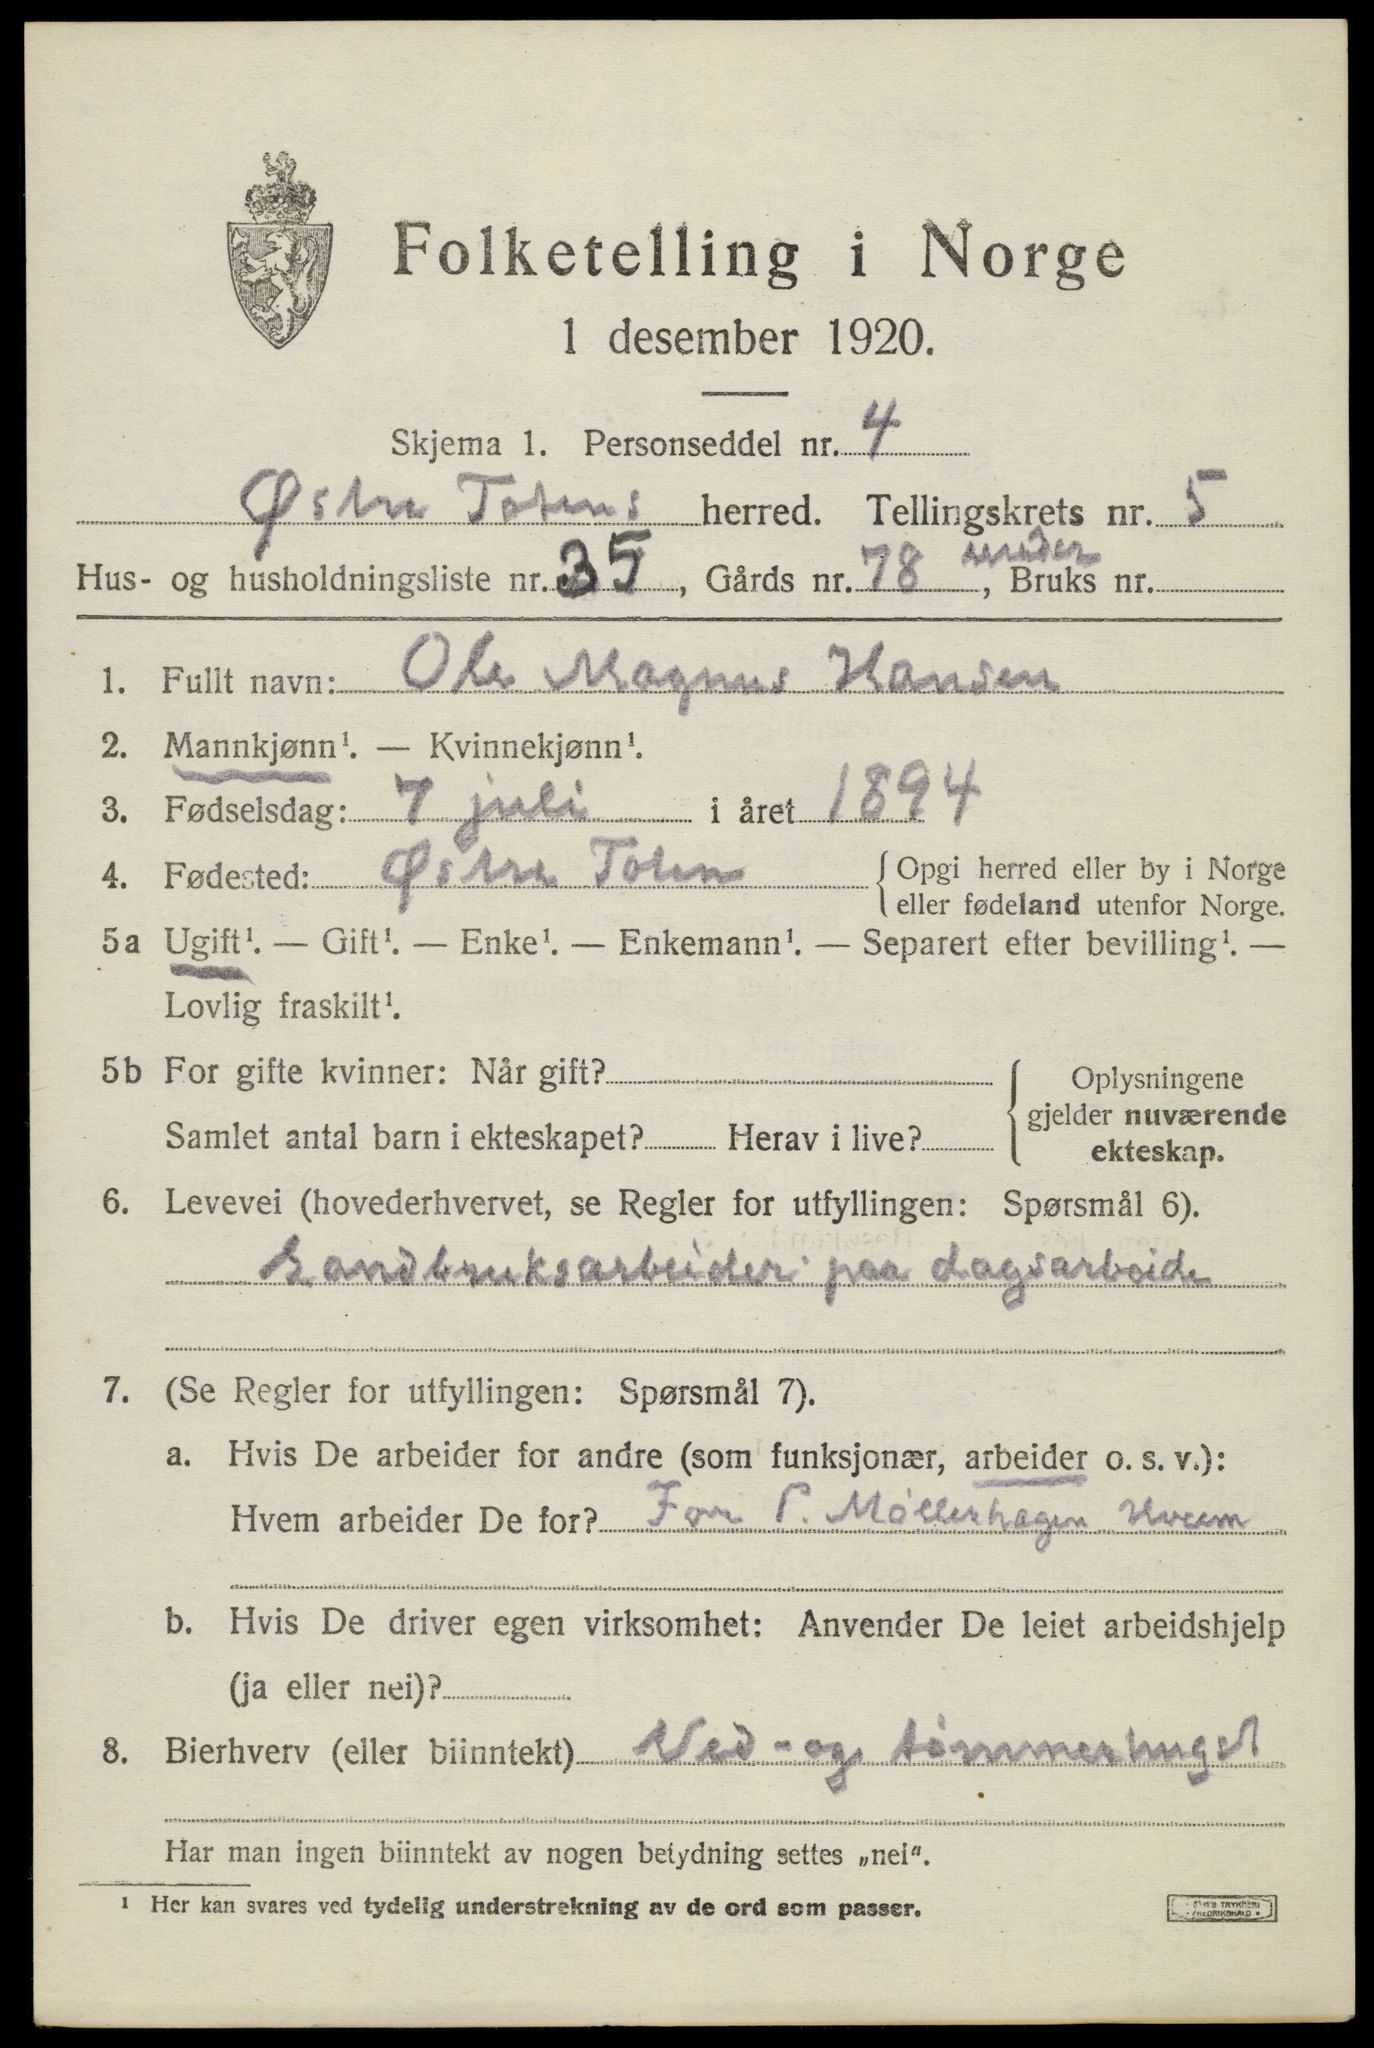 Folketelling i Norge
1 desember 1920.
Skjema 1. Personseddel nr. 4
Østre Totens herred. Tellingskrets nr. 5
Hus- og husholdningsliste nr. 35, Gårds nr. 78 under, Bruks nr.
1. Fullt navn: Ole Magnus Hansen
2. Mannkjønn¹. — Kvinnekjønn¹.
3. Fødselsdag: 7 juli i året 1894
4. Fødested: Østre Toten {Opgi herred eller by i Norge
eller fødeland utenfor Norge.
5a Ugift¹. — Gift¹. — Enke¹. — Enkemann¹. — Separert efter bevilling¹. —
Lovlig fraskilt¹.
5b For gifte kvinner: Når gift?
Samlet antal barn i ekteskapet? Herav i live?
Oplysningene
gjelder nuværende
ekteskap.
6. Levevei (hovederhvervet, se Regler for utfyllingen: Spørsmål 6).
Landbruksarbeider paa dagsarbeide
7. (Se Regler for utfyllingen: Spørsmål 7).
a. Hvis De arbeider for andre (som funksjonær, arbeider o. s. v.):
Hvem arbeider De for? For P. Møllerhagen Hveem
b. Hvis De driver egen virksomhet: Anvender De leiet arbeidshjelp
(ja eller nei)?
8. Bierhverv (eller biinntekt) Ved- og tømmerhugst
Har man ingen biinntekt av nogen betydning settes „nei".
¹ Her kan svares ved tydelig understrekning av de ord som passer.
TRYKKERI
FREDRIKSHALD